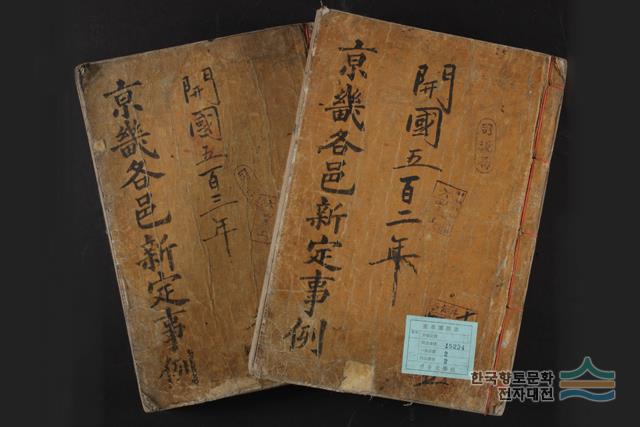 開國五百三年
京畿各邑新定事例
開國五百二年
京畿各邑新定事例
15224
2
2
한국향토문화
전자대전